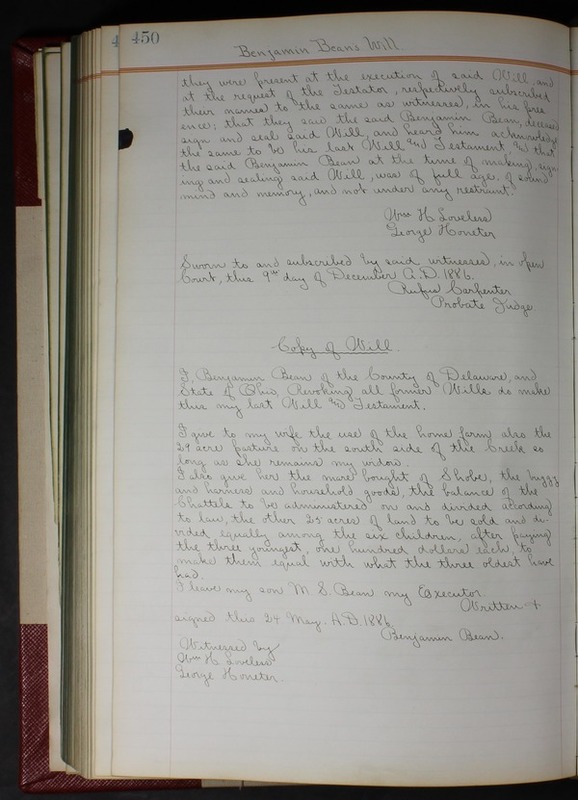 450
Benjamin Beans Will.
they were present at the execution of said Will, and
at the request of the Testator, respectively subscribed
their names to the same as witnesses, in his pres
ence; that they saw the said Benjamin Bean, deceased
sign and seal said Will, and heard him acknowledge
the same to be his last Will and Testament, and that
the said Benjamin Bean at the time of making, sign
ing and sealing said Will, was of full age, of sound
mind and memory, and not under any restraint.
Wm H. Loveless
George Honeter
Sworn to and subscribed by said witnesses, in open
Court, this 9th day of December A.D. 1886.
Rufus Carpenter
Probate Judge
Copy of Will.
I, Benjamin Bean of the County of Delaware, and
State of Ohio, Revoking all former Wills do make
this my last Will and Testament.
I give to my wife the use of the home farm also the
29 acre pasture on the south side of the Creek so
long as she remains my widow.
I also give her the mare bought of Shobe, the buggy
and harness and household goods, the balance of the
Chattels to be administered on and divided according
to law, the other 25 acres of land to be sold and di-
vided equally among the six children, after paying
the three youngest, one hundred dollars each, to
make them equal with what the three oldest have
had.
I leave my son M. S. Bean my Executor.
Written +
signed this 24 May. A.D. 1886
Benjamin Bean.
Witnessed by
Wm H. Loveless
George Honeter.